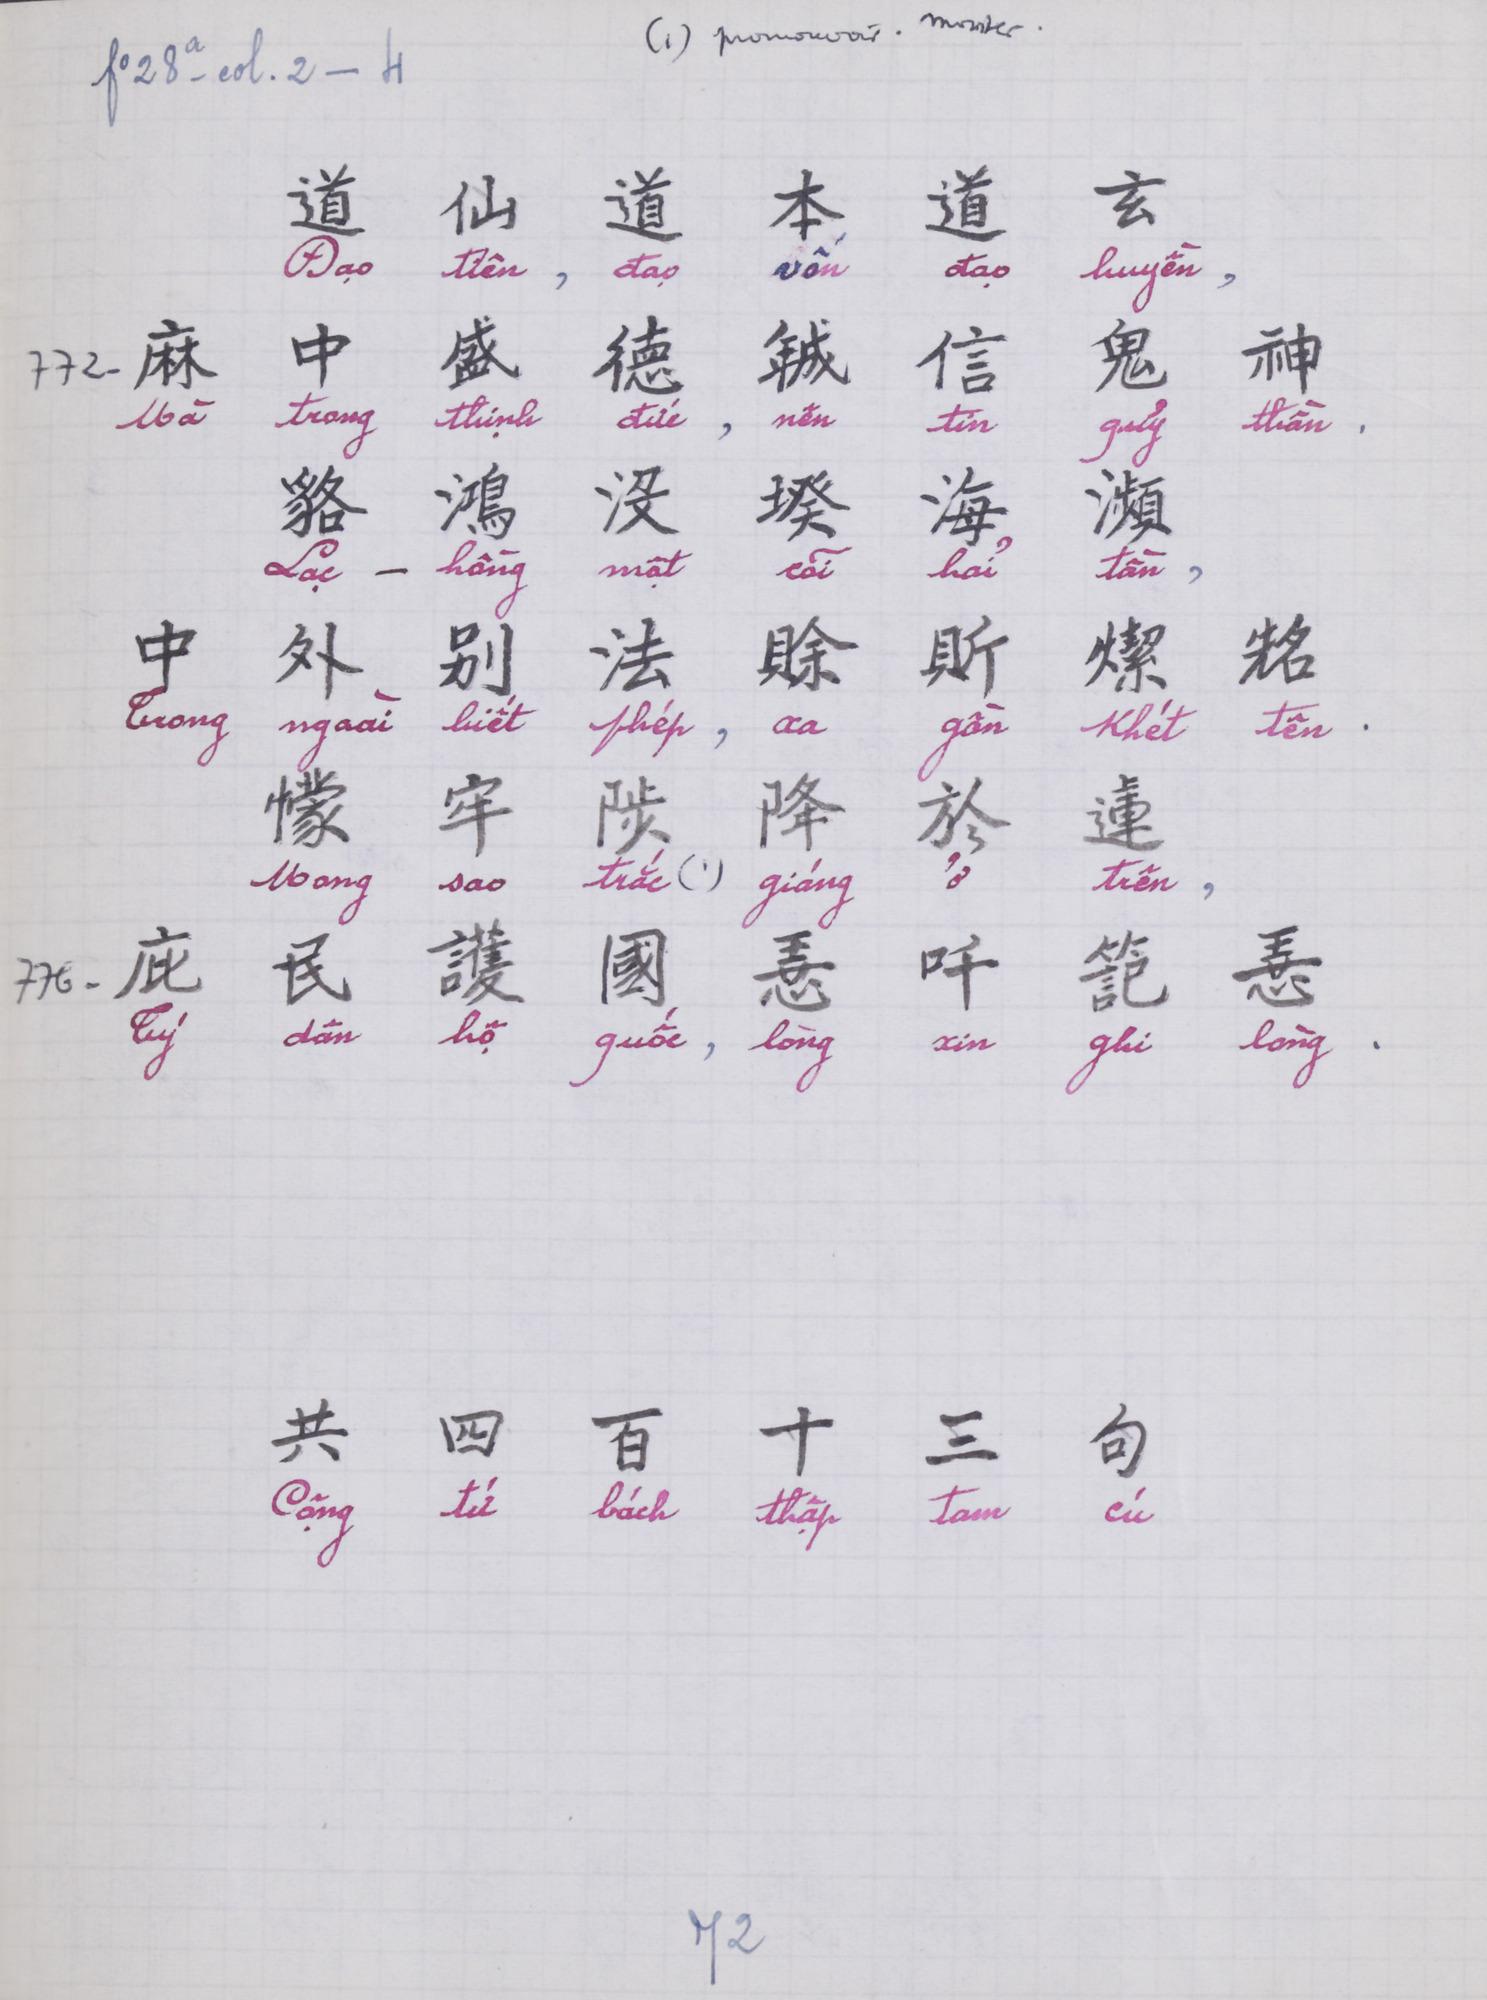 (1) promouvoir. monter.
fº 28ª - col. 2 - 4
道 仙 道 本 道 玄
Đạo tiên, đạo vốn đạo huyền,
772- 麻 中 盛 德 𢧚 信 鬼 神
Mà trong thịnh đức, nên tín quỷ thần.
貉 鴻 沒 𡎝 海 瀕
Lạc - hồng một cõi hải tần,
中 外 别 法 賒 𧵆 燦 𠸛
Trong ngoài biết phép, xa gần khét tên.
懞 牢 陟 降 於 蓮
Mong sao trắc (1) giáng ở trên,
776- 庇 民 護 國 𢚸 吀 𥱬 𢚸
Tý dân hộ quốc, lòng xin ghi lòng.
共 四 百 十 三 句
Cộng tứ bách thập tam cú
72